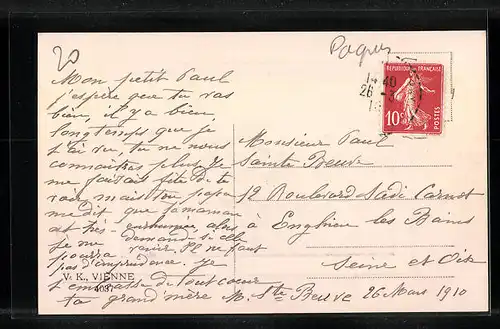 20
Paques
REPUBLIQUE FRANÇAISE
10c
POSTES
14 40
26 -3
Mon petit Paul
j'espère que tu vas
bien, il y a bien
longtemps que je
t'ai vu, tu ne nous
connaitras plus. Je
me faisais fête de te
voir, mais ton papa
me dit que ta maman
est très- enrhumée, alors
je me demande si elle
pourra venir. Il ne faut
pas d'imprudence. Je
t'embrasse de tout coeur
ta grand'mère M. Ste Beuve 26 Mars 1910
V. K., VIENNE
4037
Monsieur Paul
Sainte Beuve
12 Boulevard Sadi Carnot
à Enghien les Bains
Seine et Oise